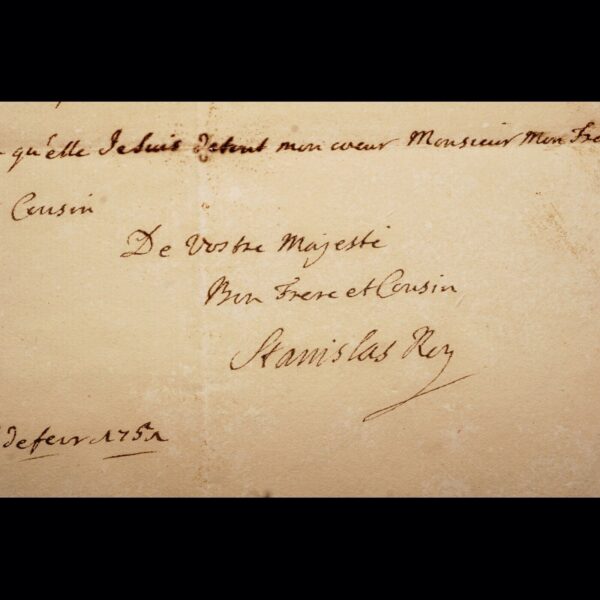 qu'elle Je suis de tout mon cœur Monsieur Mon Fre
Cousin
De Vostre Majesté
Bon Frere et Cousin
Stanislas Roy
de fevr 1751